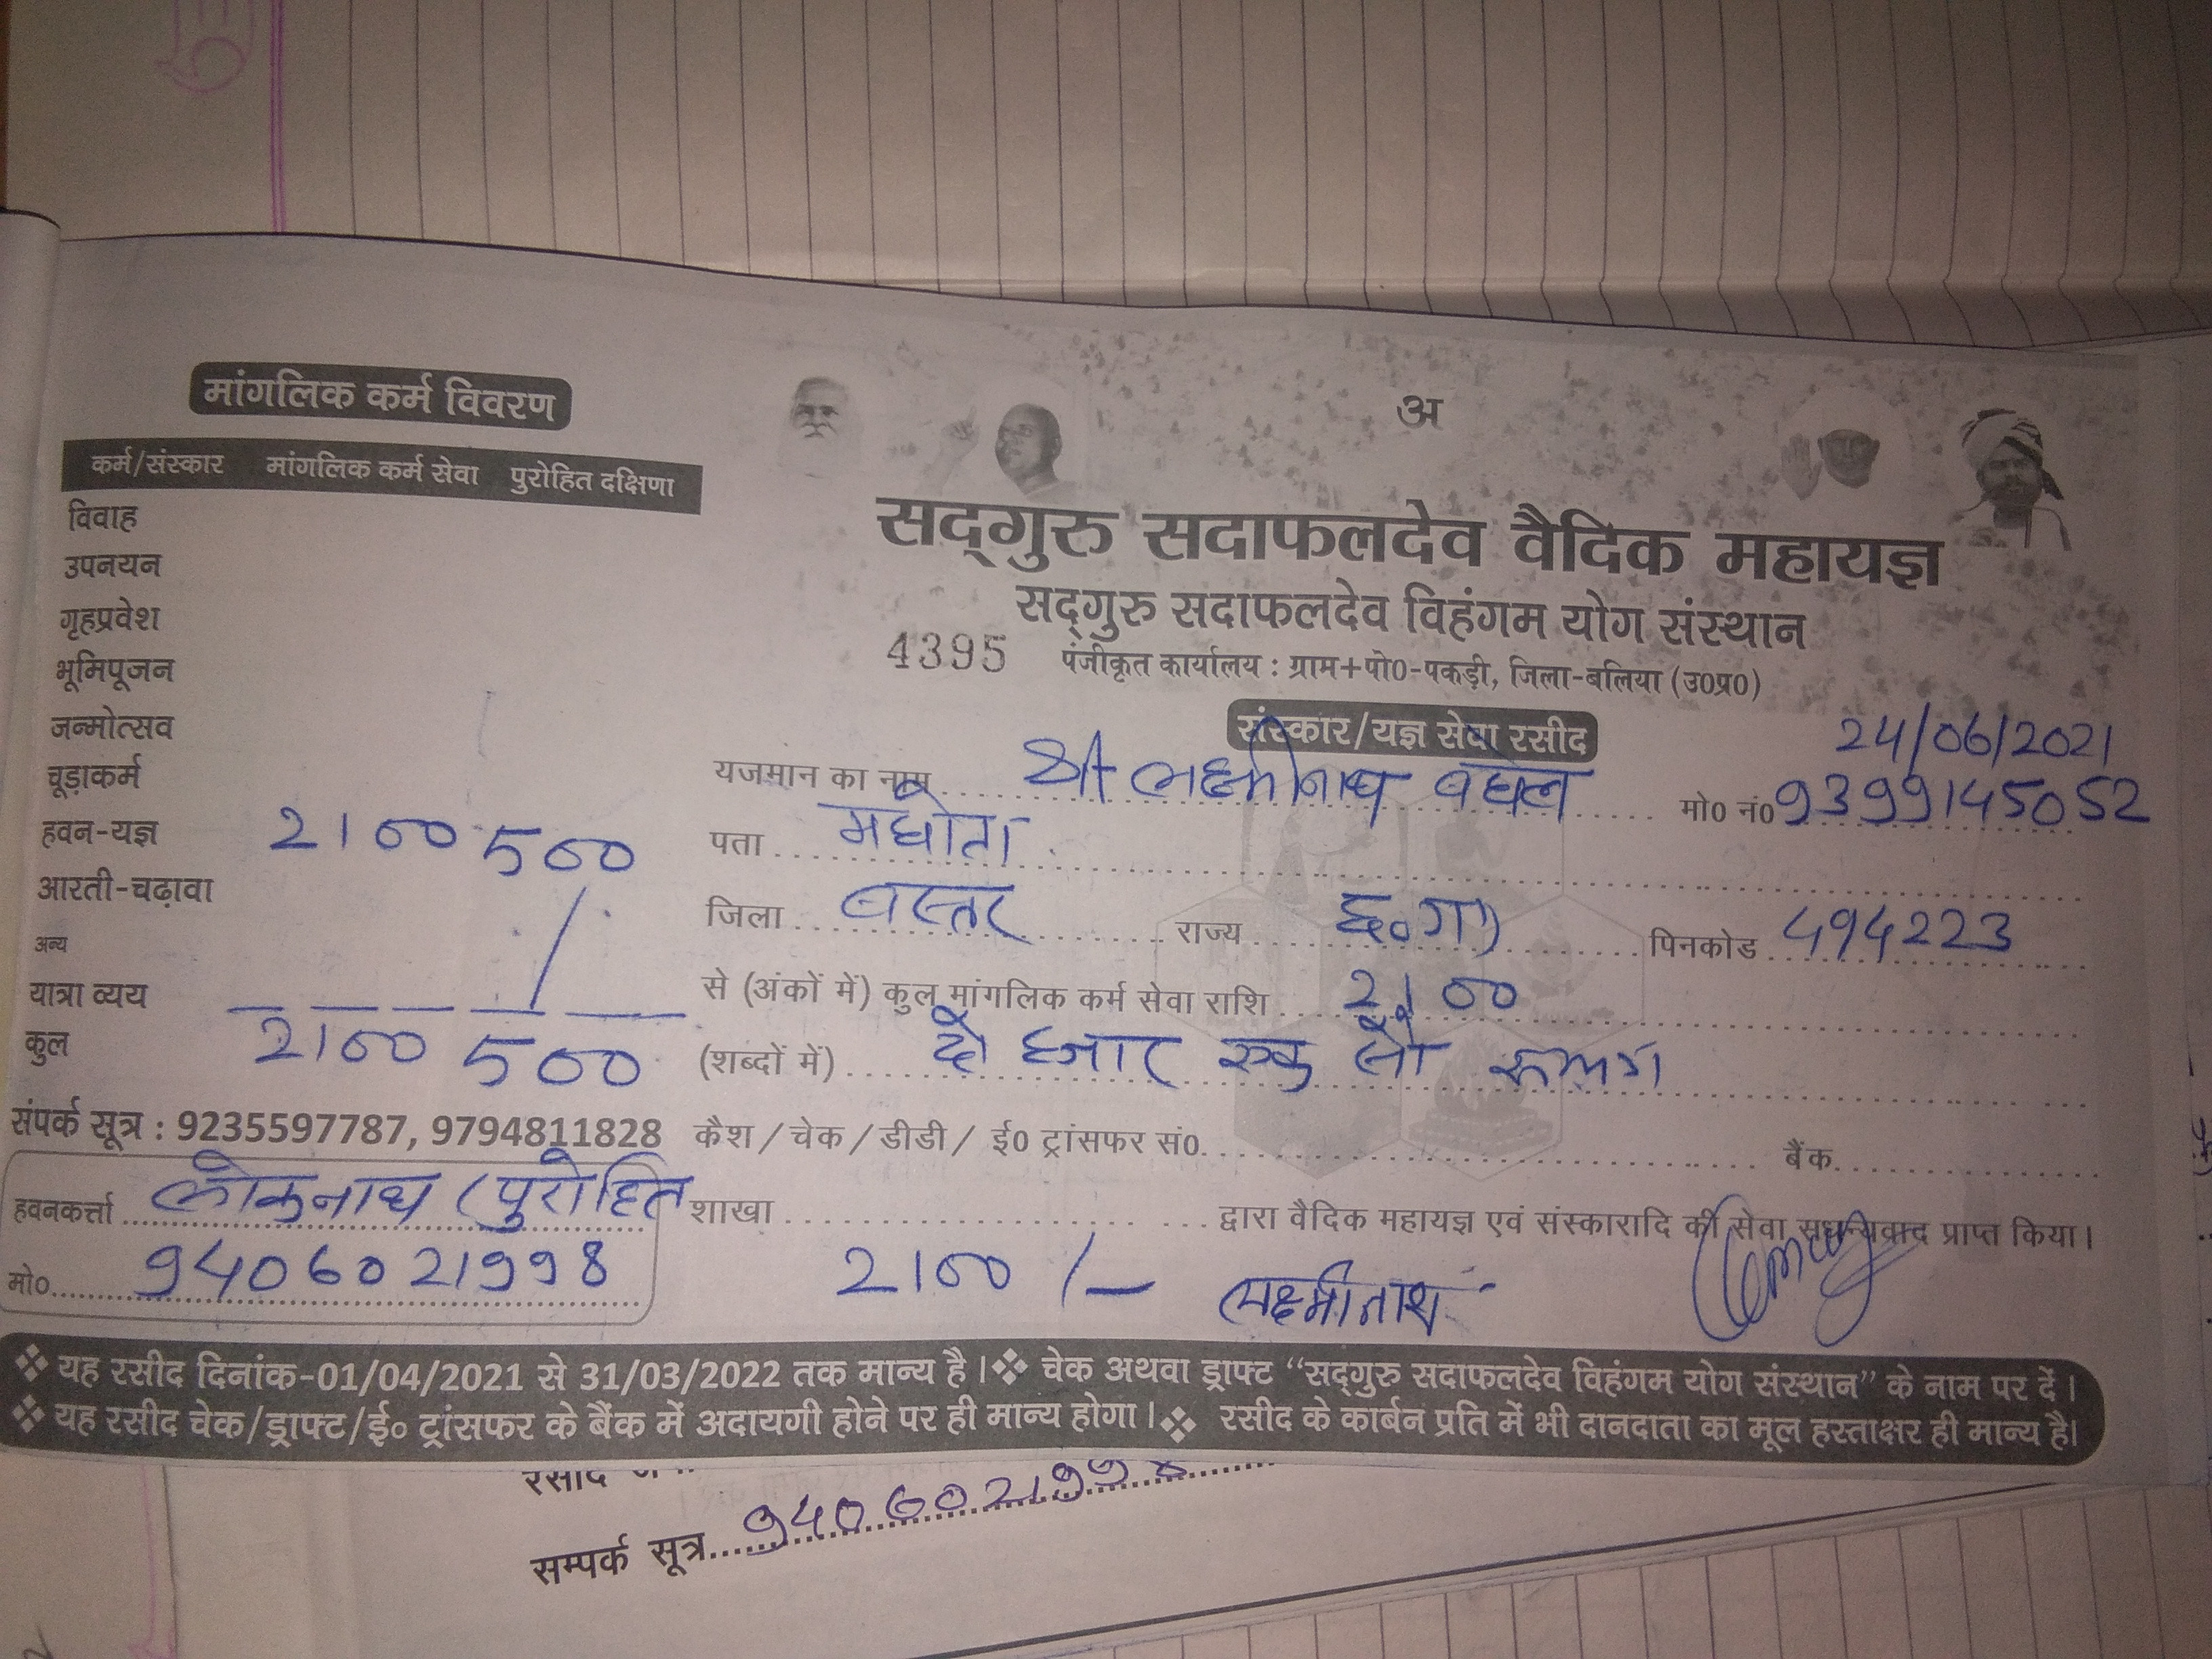 मांगलिक कर्म विवरण
कर्म/संस्कार मांगलिक कर्म सेवा पुरोहित दक्षिणा
विवाह
उपनयन
गृहप्रवेश
भूमिपूजन
जन्मोत्सव
चूड़ाकर्म
हवन-यज्ञ 2100 500
आरती-चढ़ावा
अन्य
यात्रा व्यय
कुल 2100 500
संपर्क सूत्र : 9235597787, 9794811828
हवनकर्त्ता लोकनाथ (पुरोहित
मो0 9406021998
अ
सद्गुरु सदाफलदेव वैदिक महायज्ञ
सद्गुरु सदाफलदेव विहंगम योग संस्थान
4395 पंजीकृत कार्यालय : ग्राम+पो0-पकड़ी, जिला-बलिया (उ0प्र0)
संस्कार/यज्ञ सेवा रसीद 24/06/2021
यजमान का नाम श्री लक्ष्मीनाथ बघेल मो0 नं0 9399145052
पता मधोता
जिला बस्तर राज्य छ०ग० पिनकोड 494223
से (अंकों में) कुल मांगलिक कर्म सेवा राशि 2100
(शब्दों में) दो हजार एक सौ रूपये
कैश / चेक / डीडी / ई0 ट्रांसफर सं0 बैंक
शाखा द्वारा वैदिक महायज्ञ एवं संस्कारादि की सेवा सधन्यवाद प्राप्त किया।
2100/- लक्ष्मीनाथ
❖ यह रसीद दिनांक-01/04/2021 से 31/03/2022 तक मान्य है। ❖ चेक अथवा ड्राफ्ट “सद्गुरु सदाफलदेव विहंगम योग संस्थान” के नाम पर दें।
❖ यह रसीद चेक/ड्राफ्ट/ई० ट्रांसफर के बैंक में अदायगी होने पर ही मान्य होगा। ❖ रसीद के कार्बन प्रति में भी दानदाता का मूल हस्ताक्षर ही मान्य है।
रसीद
सम्पर्क सूत्र 9406021998